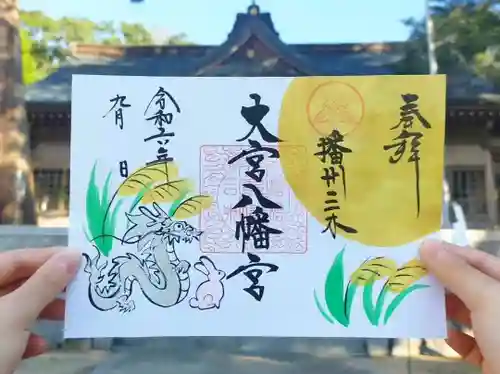 奉拝
播廿二木
大宮八幡宮
令和六年
九月 日